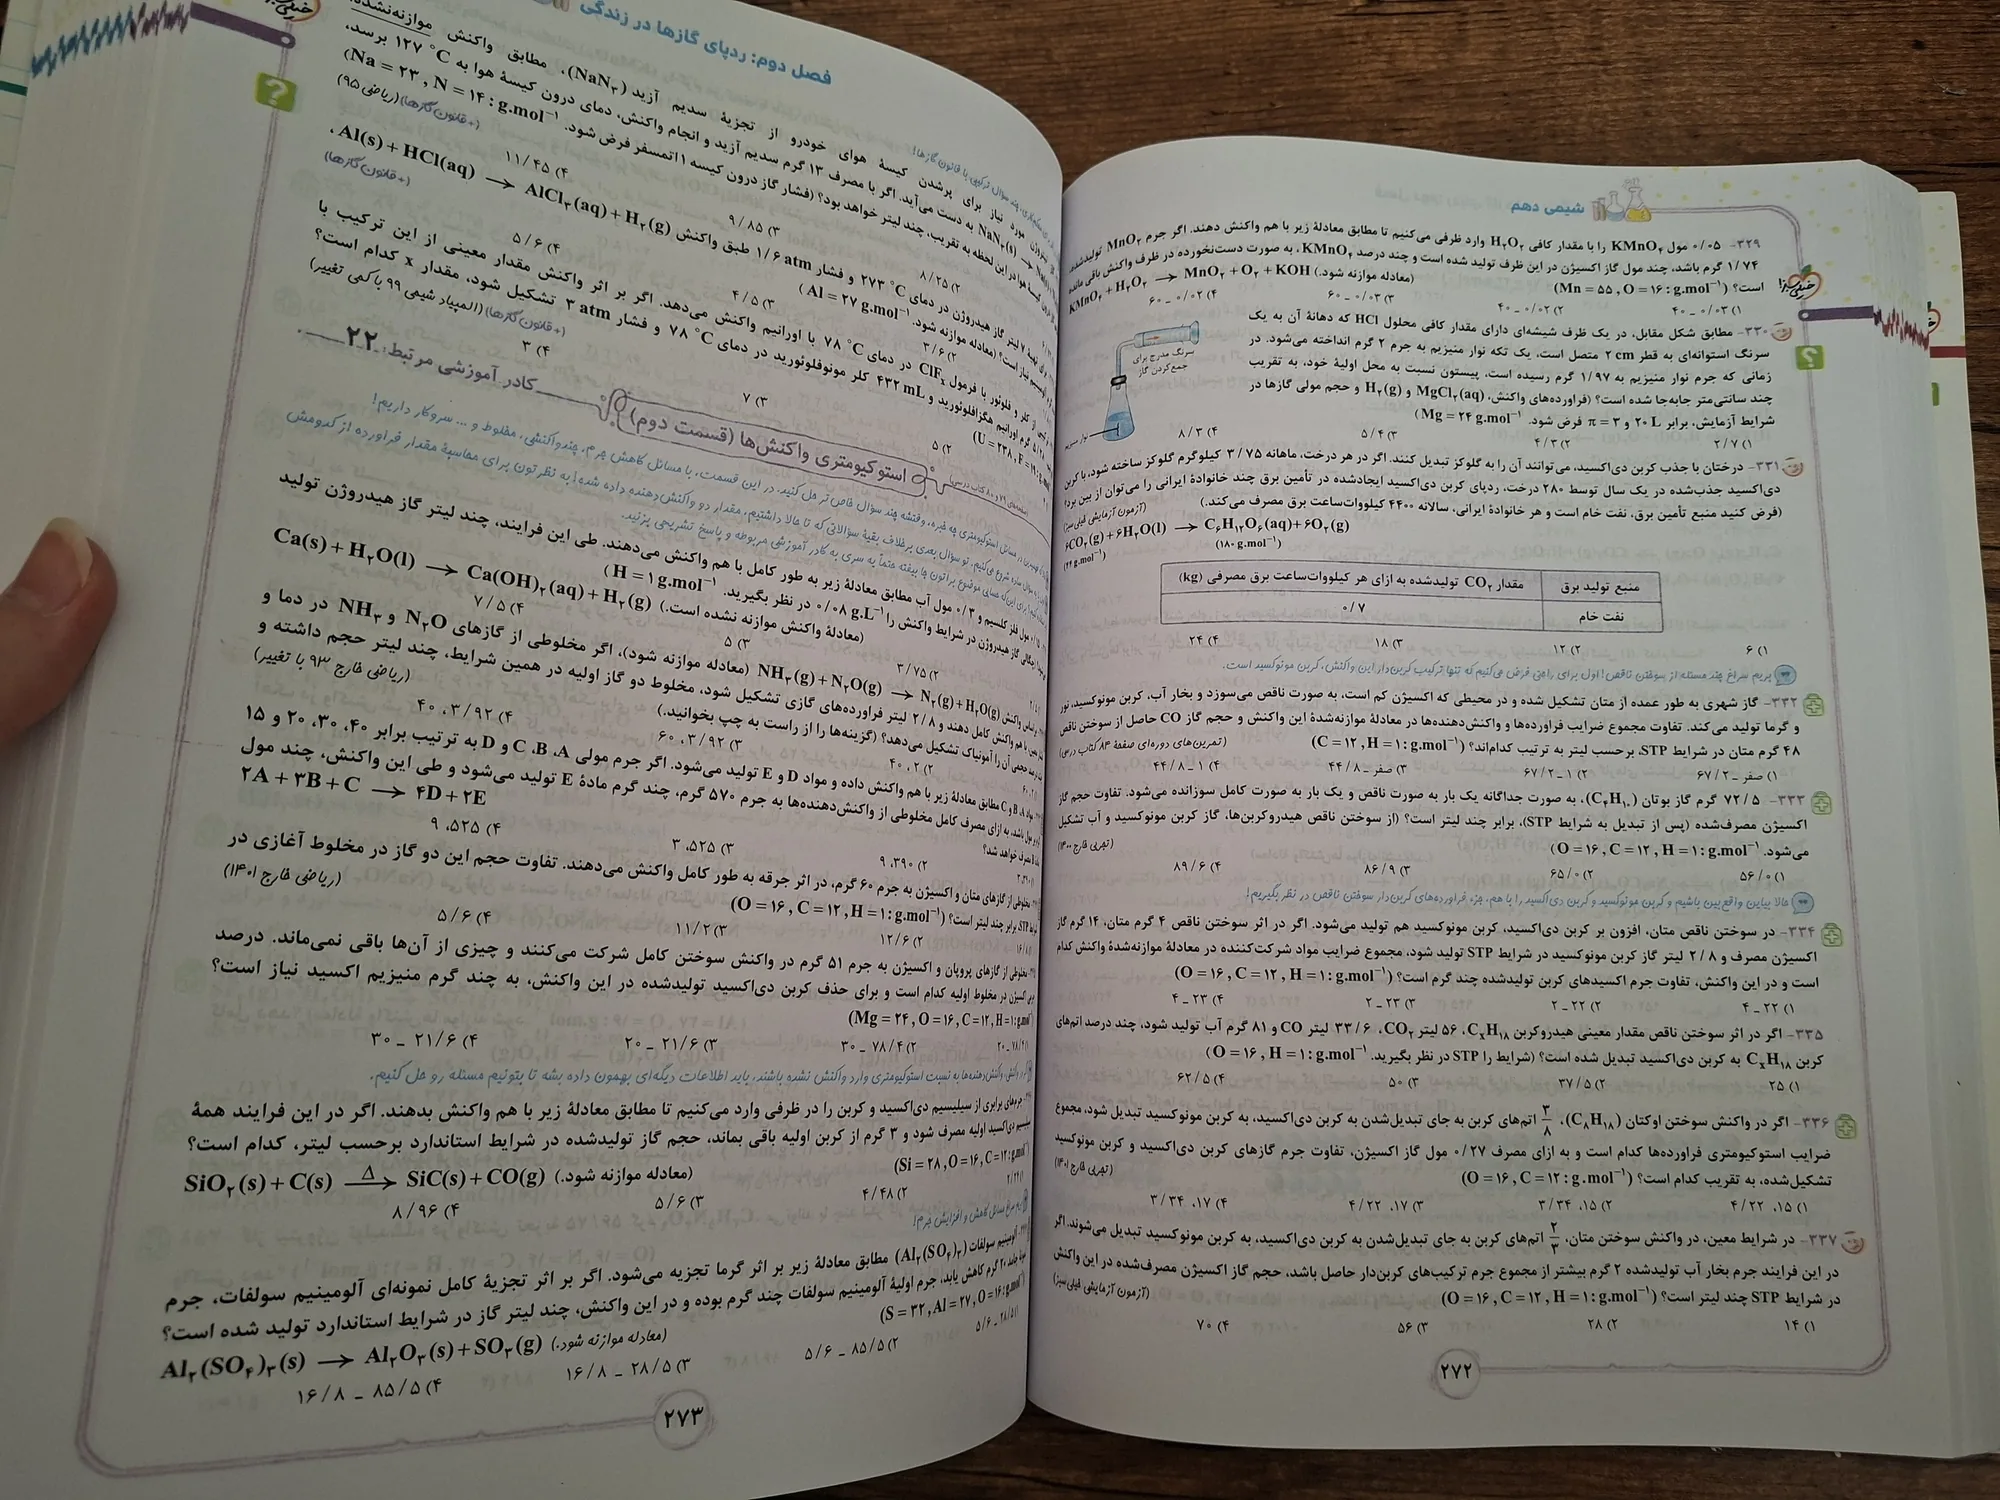 شیمی دهم
۳۲۹- ۰/۰۵ مول KMnO۴ را با مقدار کافی H۲O۲ وارد ظرفی می‌کنیم تا مطابق معادلهٔ زیر با هم واکنش دهند. اگر جرم MnO۲ تولیدشده،
۱/۷۴ گرم باشد، چند مول گاز اکسیژن در این ظرف تولید شده است و چند درصد KMnO۴، به صورت دست‌نخورده در ظرف واکنش باقی مانده
است؟ (Mn = ۵۵ , O = ۱۶ : g.mol⁻¹) (معادله موازنه شود.) KMnO۴ + H۲O۲ → MnO۲ + O۲ + KOH
۱) ۰/۰۳ ـ ۴۰ ۲) ۰/۰۲ ـ ۴۰ ۳) ۰/۰۳ ـ ۶۰ ۴) ۰/۰۲ ـ ۶۰
۳۳۰- مطابق شکل مقابل، در یک ظرف شیشه‌ای دارای مقدار کافی محلول HCl که دهانهٔ آن به یک
سرنگ استوانه‌ای به قطر ۲ cm متصل است، یک تکه نوار منیزیم به جرم ۲ گرم انداخته می‌شود. در
زمانی که جرم نوار منیزیم به ۱/۹۷ گرم رسیده است، پیستون نسبت به محل اولیهٔ خود، به تقریب
چند سانتی‌متر جابه‌جا شده است؟ (فراورده‌های واکنش، MgCl۲(aq) و H۲(g) و حجم مولی گازها در
شرایط آزمایش، برابر ۲۰ L و π = ۳ فرض شود. Mg = ۲۴ g.mol⁻¹)
۱) ۲/۷ ۲) ۴/۳ ۳) ۵/۴ ۴) ۸/۳
سرنگ مدرج برای
جمع‌کردن گاز
نوار منیزیم
۳۳۱- درختان با جذب کربن دی‌اکسید، می‌توانند آن را به گلوکز تبدیل کنند. اگر در هر درخت، ماهانه ۳/۷۵ کیلوگرم گلوکز ساخته شود، با کربن
دی‌اکسید جذب‌شده در یک سال توسط ۲۸۰ درخت، ردپای کربن دی‌اکسید ایجادشده در تأمین برق چند خانوادهٔ ایرانی را می‌توان از بین برد؟
(فرض کنید منبع تأمین برق، نفت خام است و هر خانوادهٔ ایرانی، سالانه ۴۴۰۰ کیلووات‌ساعت برق مصرف می‌کند.) (آزمون آزمایشی خیلی سبز)
۶CO۲(g) + ۶H۲O(l) → C۶H۱۲O۶(aq) + ۶O۲(g)
(۴۴ g.mol⁻¹) (۱۸۰ g.mol⁻¹)
منبع تولید برق مقدار CO۲ تولیدشده به ازای هر کیلووات‌ساعت برق مصرفی (kg)
نفت خام ۰/۷
۱) ۶ ۲) ۱۲ ۳) ۱۸ ۴) ۲۴
بریم سراغ چند مسئله از سوختن ناقص! اول برای راحتی فرض می‌کنیم که تنها ترکیب کربن‌دار این واکنش، کربن مونوکسید است.
۳۳۲- گاز شهری به طور عمده از متان تشکیل شده و در محیطی که اکسیژن کم است، به صورت ناقص می‌سوزد و بخار آب، کربن مونوکسید، نور
و گرما تولید می‌کند. تفاوت مجموع ضرایب فراورده‌ها و واکنش‌دهنده‌ها در معادلهٔ موازنه‌شدهٔ این واکنش و حجم گاز CO حاصل از سوختن ناقص
۴۸ گرم متان در شرایط STP، برحسب لیتر به ترتیب کدام‌اند؟ (C = ۱۲ , H = ۱ : g.mol⁻¹) (تمرین‌های دوره‌ای صفحهٔ ۸۴ کتاب درسی)
۱) صفر ـ ۶۷/۲ ۲) ۱ ـ ۶۷/۲ ۳) صفر ـ ۴۴/۸ ۴) ۱ ـ ۴۴/۸
۳۳۳- ۷۲/۵ گرم گاز بوتان (C۴H۱۰)، به صورت جداگانه یک بار به صورت ناقص و یک بار به صورت کامل سوزانده می‌شود. تفاوت حجم گاز
اکسیژن مصرف‌شده (پس از تبدیل به شرایط STP)، برابر چند لیتر است؟ (از سوختن ناقص هیدروکربن‌ها، گاز کربن مونوکسید و آب تشکیل
می‌شود. (O = ۱۶ , C = ۱۲ , H = ۱ : g.mol⁻¹) (تجربی خارج ۱۴۰۰)
۱) ۵۶/۰ ۲) ۶۵/۰ ۳) ۸۶/۹ ۴) ۸۹/۶
حالا بیاین واقع‌بین باشیم و کربن مونوکسید و کربن دی‌اکسید را با هم، جزء فراورده‌های کربن‌دار سوختن ناقص در نظر بگیریم!
۳۳۴- در سوختن ناقص متان، افزون بر کربن دی‌اکسید، کربن مونوکسید هم تولید می‌شود. اگر در اثر سوختن ناقص ۴ گرم متان، ۱۴ گرم گاز
اکسیژن مصرف و ۲/۸ لیتر گاز کربن مونوکسید در شرایط STP تولید شود، مجموع ضرایب مواد شرکت‌کننده در معادلهٔ موازنه‌شدهٔ واکنش کدام
است و در این واکنش، تفاوت جرم اکسیدهای کربن تولیدشده چند گرم است؟ (O = ۱۶ , C = ۱۲ , H = ۱ : g.mol⁻¹)
۱) ۲۲ ـ ۴ ۲) ۲۲ ـ ۲ ۳) ۲۳ ـ ۲ ۴) ۲۳ ـ ۴
۳۳۵- اگر در اثر سوختن ناقص مقدار معینی هیدروکربن CxH۱۸، ۵۶ لیتر CO۲، ۳۳/۶ لیتر CO و ۸۱ گرم آب تولید شود، چند درصد اتم‌های
کربن CxH۱۸ به کربن دی‌اکسید تبدیل شده است؟ (شرایط را STP در نظر بگیرید. O = ۱۶ , H = ۱ : g.mol⁻¹)
۱) ۲۵ ۲) ۳۷/۵ ۳) ۵۰ ۴) ۶۲/۵
۳۳۶- اگر در واکنش سوختن اوکتان (C۸H۱۸)، ۳/۸ اتم‌های کربن به جای تبدیل‌شدن به کربن دی‌اکسید، به کربن مونوکسید تبدیل شود، مجموع
ضرایب استوکیومتری فراورده‌ها کدام است و به ازای مصرف ۰/۲۷ مول گاز اکسیژن، تفاوت جرم گازهای کربن دی‌اکسید و کربن مونوکسید
تشکیل‌شده، به تقریب کدام است؟ (O = ۱۶ , C = ۱۲ : g.mol⁻¹) (تجربی خارج ۱۴۰۱)
۱) ۱۵، ۴/۲۲ ۲) ۱۵، ۳/۳۴ ۳) ۱۷، ۴/۲۲ ۴) ۱۷، ۳/۳۴
۳۳۷- در شرایط معین، در واکنش سوختن متان، ۲/۳ اتم‌های کربن به جای تبدیل‌شدن به کربن دی‌اکسید، به کربن مونوکسید تبدیل می‌شوند. اگر
در این فرایند جرم بخار آب تولیدشده ۲ گرم بیشتر از مجموع جرم ترکیب‌های کربن‌دار حاصل باشد، حجم گاز اکسیژن مصرف‌شده در این واکنش
در شرایط STP چند لیتر است؟ (O = ۱۶ , C = ۱۲ , H = ۱ : g.mol⁻¹) (آزمون آزمایشی خیلی سبز)
۱) ۱۴ ۲) ۲۸ ۳) ۵۶ ۴) ۷۰
۲۷۲
فصل دوم: ردپای گازها در زندگی
نیاز برای پرشدن کیسهٔ هوای خودرو از تجزیهٔ سدیم آزید (NaN۳)، مطابق واکنش موازنه‌نشده:
NaN۳(s) → به دست می‌آید. اگر با مصرف ۱۳ گرم سدیم آزید و انجام واکنش، دمای درون کیسهٔ هوا به ۱۲۷ °C برسد،
هوا در این لحظه به تقریب، چند لیتر خواهد بود؟ (فشار گاز درون کیسه ۱ اتمسفر فرض شود. Na = ۲۳ , N = ۱۴ : g.mol⁻¹)
(+ قانون گازها) (ریاضی ۹۵)
۲) ۸/۲۵ ۳) ۹/۸۵ ۴) ۱۱/۴۵
۷ لیتر گاز هیدروژن در دمای ۲۷۳ °C و فشار ۱/۶ atm طبق واکنش Al(s) + HCl(aq) → AlCl۳(aq) + H۲(g)،
نیاز است؟ (معادله موازنه شود. Al = ۲۷ g.mol⁻¹) (+ قانون گازها)
۲) ۳/۶ ۳) ۴/۵ ۴) ۵/۶
از کلر و فلوئور با فرمول ClFx در دمای ۷۸ °C با اورانیم واکنش می‌دهد. اگر بر اثر واکنش مقدار معینی از این ترکیب با
گرم اورانیم هگزافلوئورید و ۴۳۲ mL کلر مونوفلوئورید در دمای ۷۸ °C و فشار ۳ atm تشکیل شود، مقدار x کدام است؟
(+ قانون گازها) (المپیاد شیمی ۹۹ با کمی تغییر)
۲) ۵ ۳) ۷ ۴) ۳
استوکیومتری واکنش‌ها (قسمت دوم)
کادر آموزشی مرتبط: ۲۲
۰/۳ مول آب مطابق معادلهٔ زیر به طور کامل با هم واکنش می‌دهند. طی این فرایند، چند لیتر گاز هیدروژن تولید
گاز هیدروژن در شرایط واکنش را ۰/۰۸ g.L⁻¹ در نظر بگیرید. H = ۱ g.mol⁻¹)
(معادلهٔ واکنش موازنه نشده است.) Ca(s) + H۲O(l) → Ca(OH)۲(aq) + H۲(g)
۲) ۳/۷۵ ۳) ۵ ۴) ۷/۵
واکنش NH۳(g) + N۲O(g) → N۲(g) + H۲O(g) (معادله موازنه شود)، اگر مخلوطی از گازهای N۲O و NH۳ در دما و
با هم واکنش کامل دهند و ۲/۸ لیتر فراورده‌های گازی تشکیل شود، مخلوط دو گاز اولیه در همین شرایط، چند لیتر حجم داشته و
درصد حجمی آن را آمونیاک تشکیل می‌دهد؟ (گزینه‌ها را از راست به چپ بخوانید.) (ریاضی خارج ۹۳ با تغییر)
۲) ۲، ۴۰ ۳) ۳/۹۲، ۶۰ ۴) ۳/۹۲، ۴۰
A، B و C مطابق معادلهٔ زیر با هم واکنش داده و مواد D و E تولید می‌شود. اگر جرم مولی A، B، C و D به ترتیب برابر ۴۰، ۳۰، ۲۰ و ۱۵
باشد، به ازای مصرف کامل مخلوطی از واکنش‌دهنده‌ها به جرم ۵۷۰ گرم، چند گرم مادهٔ E تولید می‌شود و طی این واکنش، چند مول
مصرف خواهد شد؟ ۲A + ۳B + C → ۴D + ۲E
۲) ۳۹۰، ۹ ۳) ۵۲۵، ۳ ۴) ۵۲۵، ۹
مخلوطی از گازهای متان و اکسیژن به جرم ۶۰ گرم، در اثر جرقه به طور کامل واکنش می‌دهند. تفاوت حجم این دو گاز در مخلوط آغازی در
STP، برابر چند لیتر است؟ (O = ۱۶ , C = ۱۲ , H = ۱ : g.mol⁻¹) (ریاضی خارج ۱۴۰۱)
۲) ۱۲/۶ ۳) ۱۱/۲ ۴) ۵/۶
مخلوطی از گازهای پروپان و اکسیژن به جرم ۵۱ گرم در واکنش سوختن کامل شرکت می‌کنند و چیزی از آن‌ها باقی نمی‌ماند. درصد
اکسیژن در مخلوط اولیه کدام است و برای حذف کربن دی‌اکسید تولیدشده در این واکنش، به چند گرم منیزیم اکسید نیاز است؟
(Mg = ۲۴ , O = ۱۶ , C = ۱۲ , H = ۱ : g.mol⁻¹)
۱) ۷۸/۴ ـ ۲۰ ۲) ۷۸/۴ ـ ۳۰ ۳) ۲۱/۶ ـ ۲۰ ۴) ۲۱/۶ ـ ۳۰
واکنش‌دهنده‌ها به نسبت استوکیومتری وارد واکنش نشده باشند، باید اطلاعات دیگه‌ای بهمون داده بشه تا بتونیم مسئله رو حل کنیم.
جرم‌های برابری از سیلیسیم دی‌اکسید و کربن را در ظرفی وارد می‌کنیم تا مطابق معادلهٔ زیر با هم واکنش بدهند. اگر در این فرایند همهٔ
سیلیسیم دی‌اکسید اولیه مصرف شود و ۳ گرم از کربن اولیه باقی بماند، حجم گاز تولیدشده در شرایط استاندارد برحسب لیتر، کدام است؟
(Si = ۲۸ , O = ۱۶ , C = ۱۲ : g.mol⁻¹) (معادله موازنه شود.) SiO۲(s) + C(s) →Δ SiC(s) + CO(g)
۱) ۲/۲۴ ۲) ۴/۴۸ ۳) ۵/۶ ۴) ۸/۹۶
آلومینیم سولفات (Al۲(SO۴)۳) مطابق معادلهٔ زیر بر اثر گرما تجزیه می‌شود. اگر بر اثر تجزیهٔ کامل نمونه‌ای آلومینیم سولفات، جرم
۲۰ گرم کاهش یابد، جرم اولیهٔ آلومینیم سولفات چند گرم بوده و در این واکنش، چند لیتر گاز در شرایط استاندارد تولید شده است؟
(S = ۳۲ , Al = ۲۷ , O = ۱۶ : g.mol⁻¹) (معادله موازنه شود.) Al۲(SO۴)۳(s) → Al۲O۳(s) + SO۳(g)
۱) ۲۸/۵ ـ ۵/۶ ۲) ۸۵/۵ ـ ۵/۶ ۳) ۲۸/۵ ـ ۱۶/۸ ۴) ۸۵/۵ ـ ۱۶/۸
۲۷۳